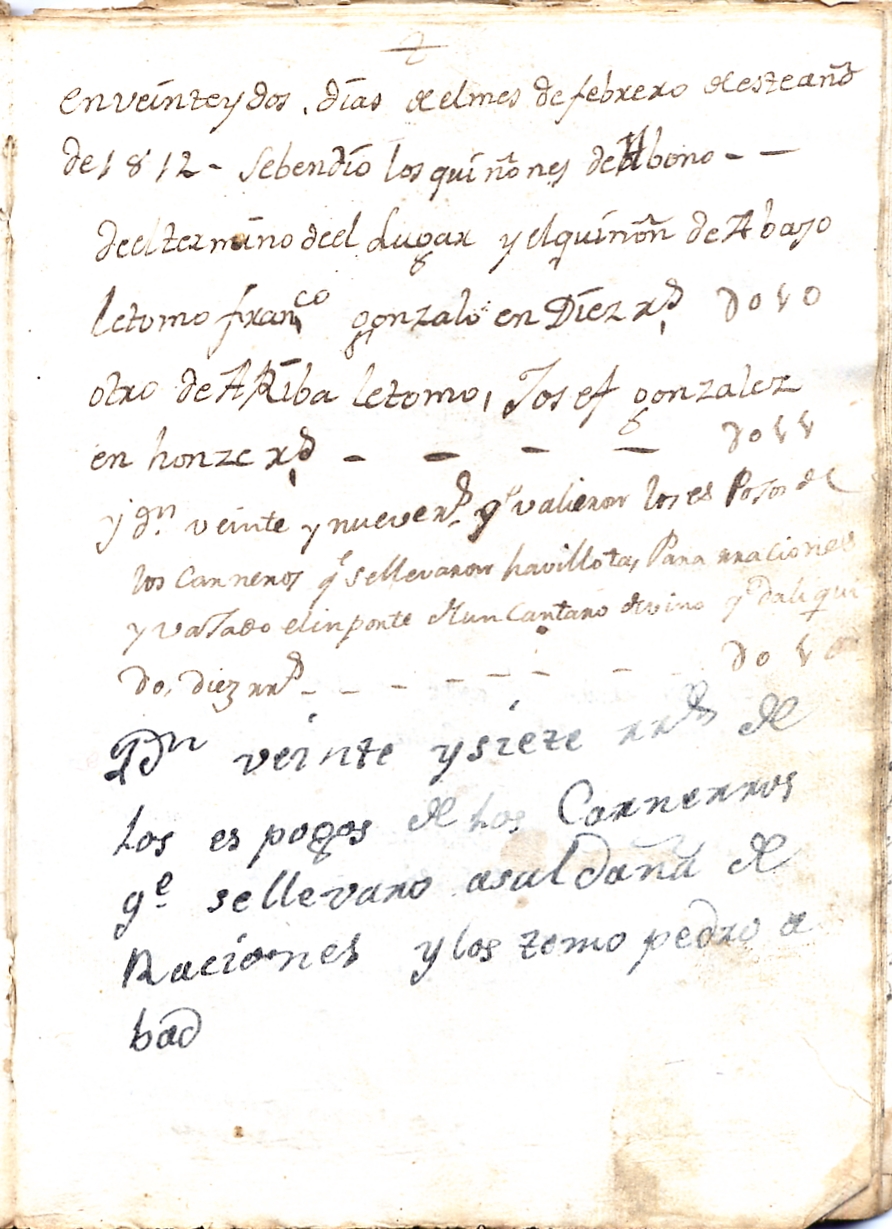 en veinte y dos. dias del mes de febrero de este año
de 1812 - Sebendio los quiñones de Abono - -
deel termino deel Lugar y el quiñon de Abajo
letomo franco gonzalo en Diez rs do10
otro de ARiba letomo, Josef gonzalez
en honze rs - - - - do11
y dn veinte y nueve rs qe valieron los es Pojos de
los carneros qe sellevaron havillota, Para rraciones
y vajado elinporte de un Cantaro de vino qeda liqui
do, diez rrs - - - - - - - - do
Dn veinte ysiete rrs de
Los es pogos de Los Carnerros
qe se llevaro asaldaña de
Raciones y los tomo pedro a
bad